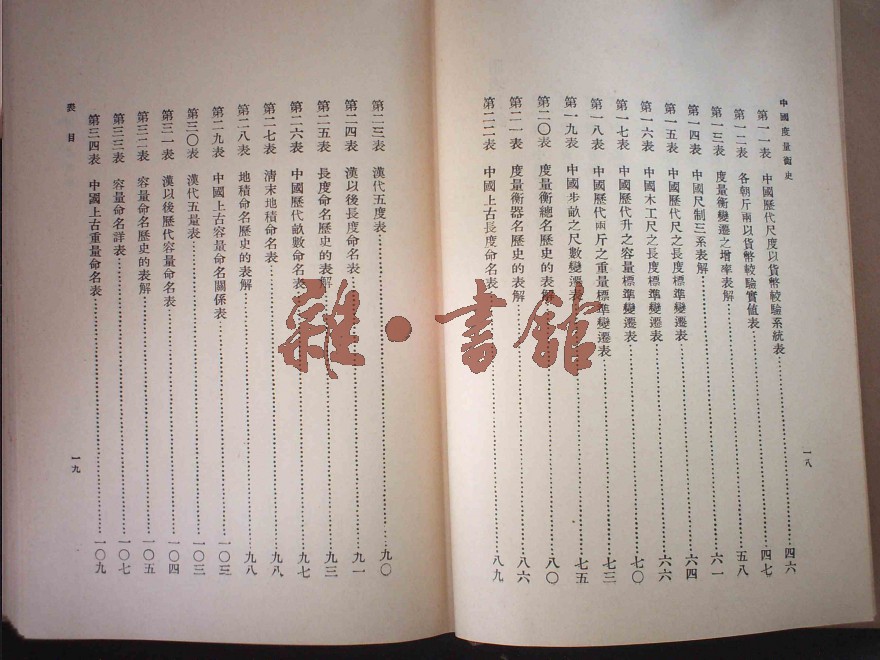 中國度量衡史
第一一表　中國歷代尺度以貨幣較驗系統表……四六
第一二表　各朝斤兩以貨幣較驗實値表……四七
第一三表　度量衡變遷之增率表解……五八
第一四表　中國尺制三系表解……六一
第一五表　中國歷代尺之長度標準變遷表……六四
第一六表　中國木工尺之長度標準變遷表……六六
第一七表　中國歷代升之容量標準變遷表……七〇
第一八表　中國歷代兩斤之重量標準變遷表……七三
第一九表　中國步畝之尺數變遷表……七五
第二〇表　度量衡總名歷史的表解……八〇
第二一表　度量衡器名歷史的表解……八六
第二二表　中國上古長度命名表……八九
一八
第二三表　漢代五度表……九〇
第二四表　漢以後長度命名表……九一
第二五表　長度命名歷史的表解……九三
第二六表　中國歷代畝數命名表……九七
第二七表　清末地積命名表……九八
第二八表　地積命名歷史的表解……九八
第二九表　中國上古容量命名關係表……一〇三
第三〇表　漢代五量表……一〇三
第三一表　漢以後歷代容量命名表……一〇四
第三二表　容量命名歷史的表解……一〇五
第三三表　容量命名詳表……一〇七
第三四表　中國上古重量命名表……一〇九
表目
一九
雜·書館